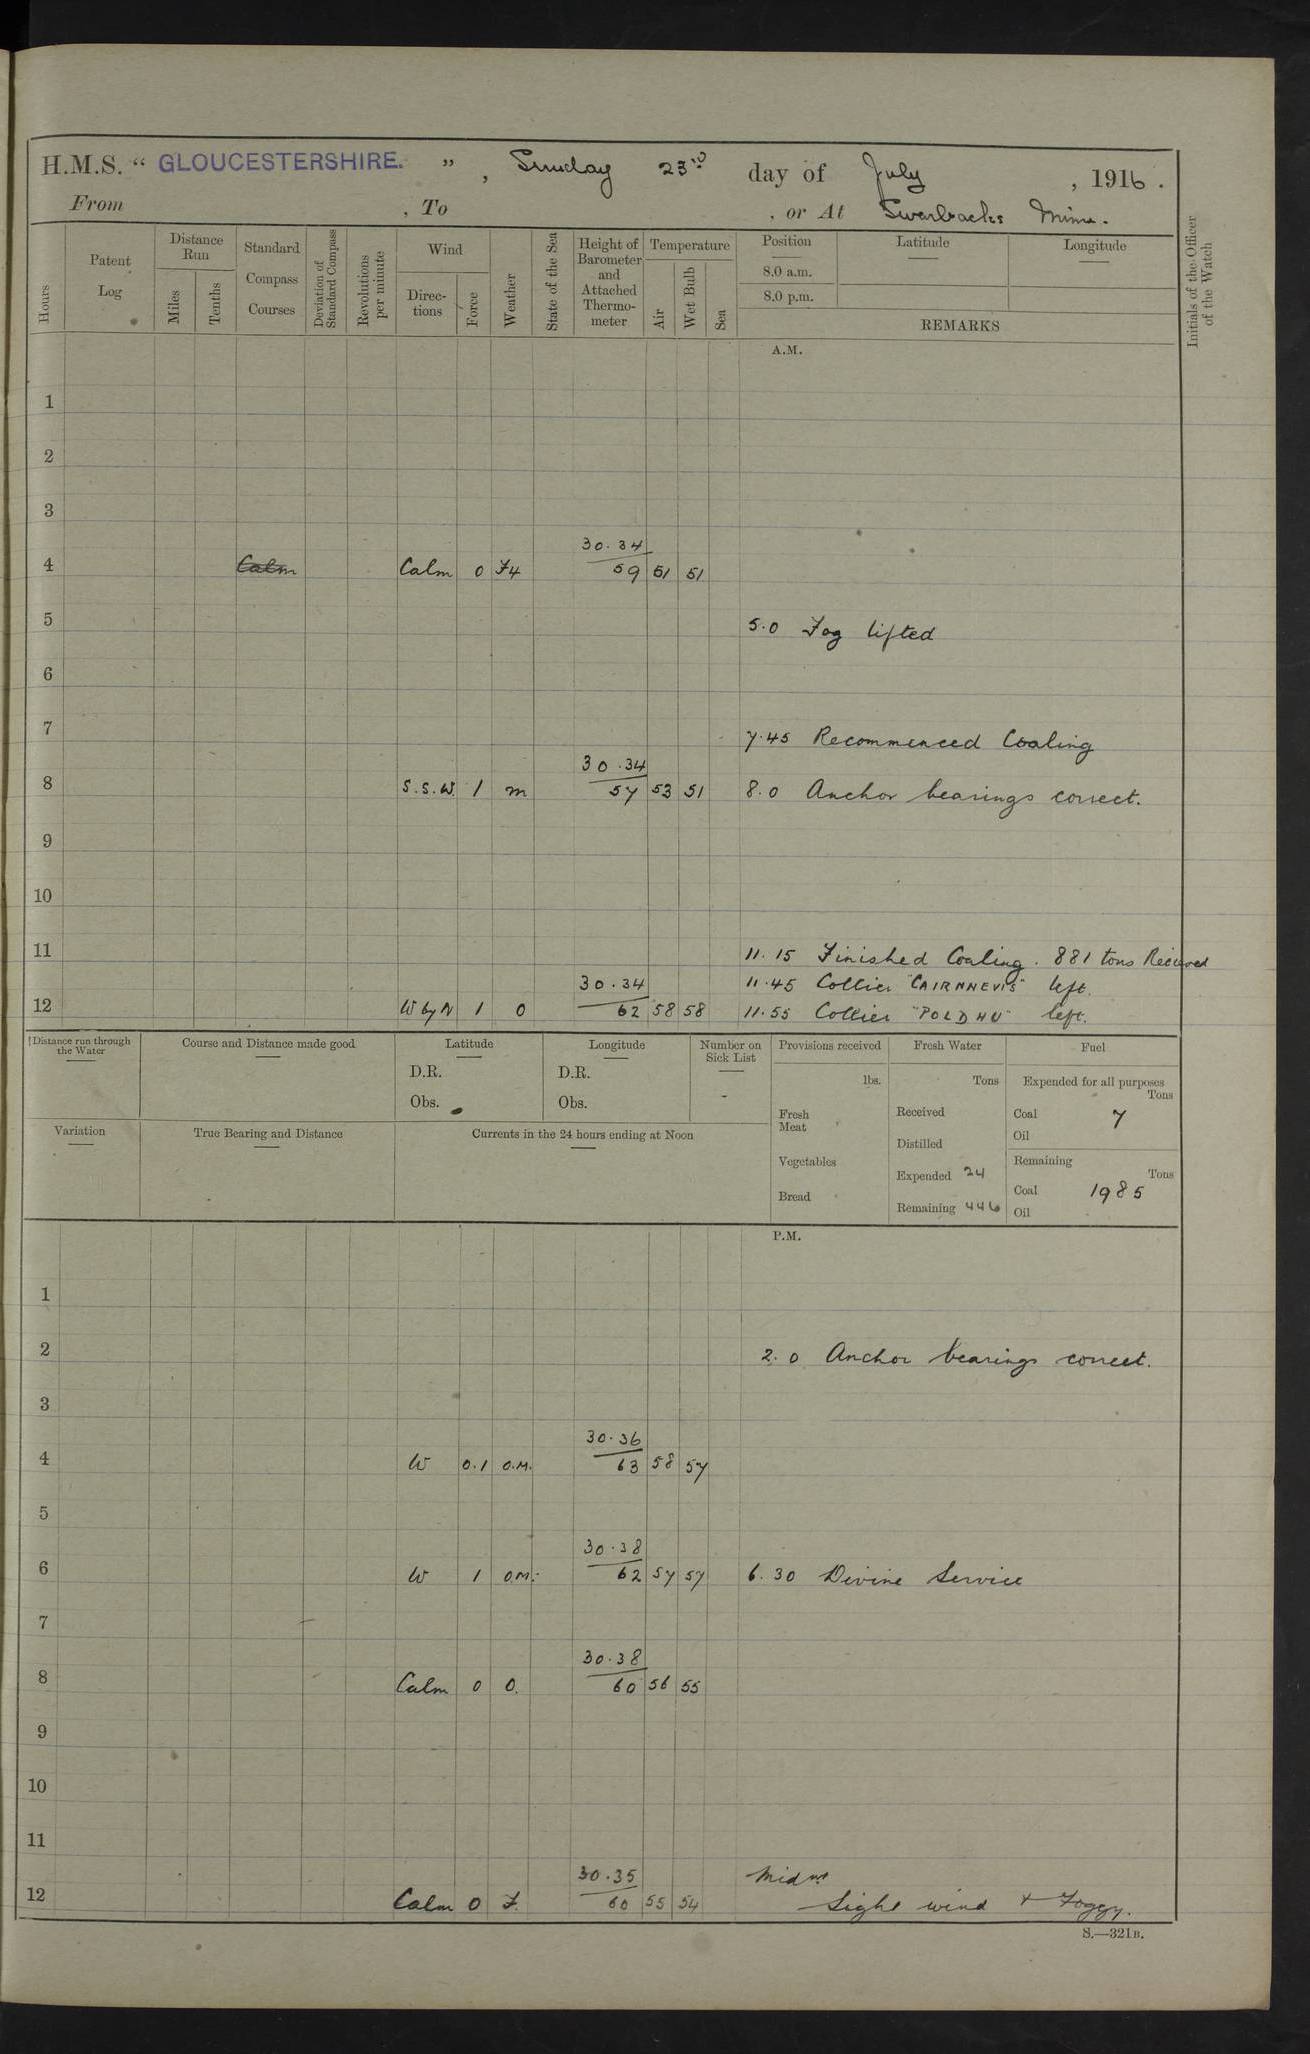 H.M.S. “ GLOUCESTERSHIRE. ” , Sunday 23rd day of July , 1916 .
From , To , or At Swarbacks Minn.
Hours
Patent Log
Distance Run
Miles
Tenths
Standard Compass Courses
Deviation of Standard Compass
Revolutions per minute
Wind
Directions
Force
Weather
State of the Sea
Height of Barometer and Attached Thermometer
Temperature
Air
Wet Bulb
Sea
Position
8.0 a.m.
8.0 p.m.
Latitude
Longitude
REMARKS
Initials of the Officer of the Watch
A.M.
1
2
3
30.34
4 Calm Calm 0 F4 59 51 51
5 5.0 Fog lifted
6
7 7.45 Recommenced Coaling
30.34
8 S.S.W. 1 m 57 53 51 8.0 Anchor bearings correct.
9
10
11 11.15 Finished Coaling. 881 tons Received
30.34 11.45 Collier "CAIRNNEVIS" left.
12 W by N 1 0 62 58 58 11.55 Collier "POLDHU" left.
Distance run through the Water
Course and Distance made good
Latitude
D.R.
Obs.
Longitude
D.R.
Obs.
Number on Sick List
-
Provisions received
lbs.
Fresh Meat
Vegetables
Bread
Fresh Water
Tons
Received
Distilled
Expended 24
Remaining 446
Fuel
Expended for all purposes
Tons
Coal 7
Oil
Remaining
Tons
Coal 1985
Oil
Variation
True Bearing and Distance
Currents in the 24 hours ending at Noon
P.M.
1
2 2.0 Anchor bearings correct.
3
30.36
4 W 0.1 O.M. 63 58 57
5
30.38
6 W 1 O.M. 62 57 57 6.30 Divine Service
7
30.38
8 Calm 0 O. 60 56 55
9
10
11
30.35 Midnt
12 Calm 0 F. 60 55 54 Light wind & Foggy.
S.—321B.